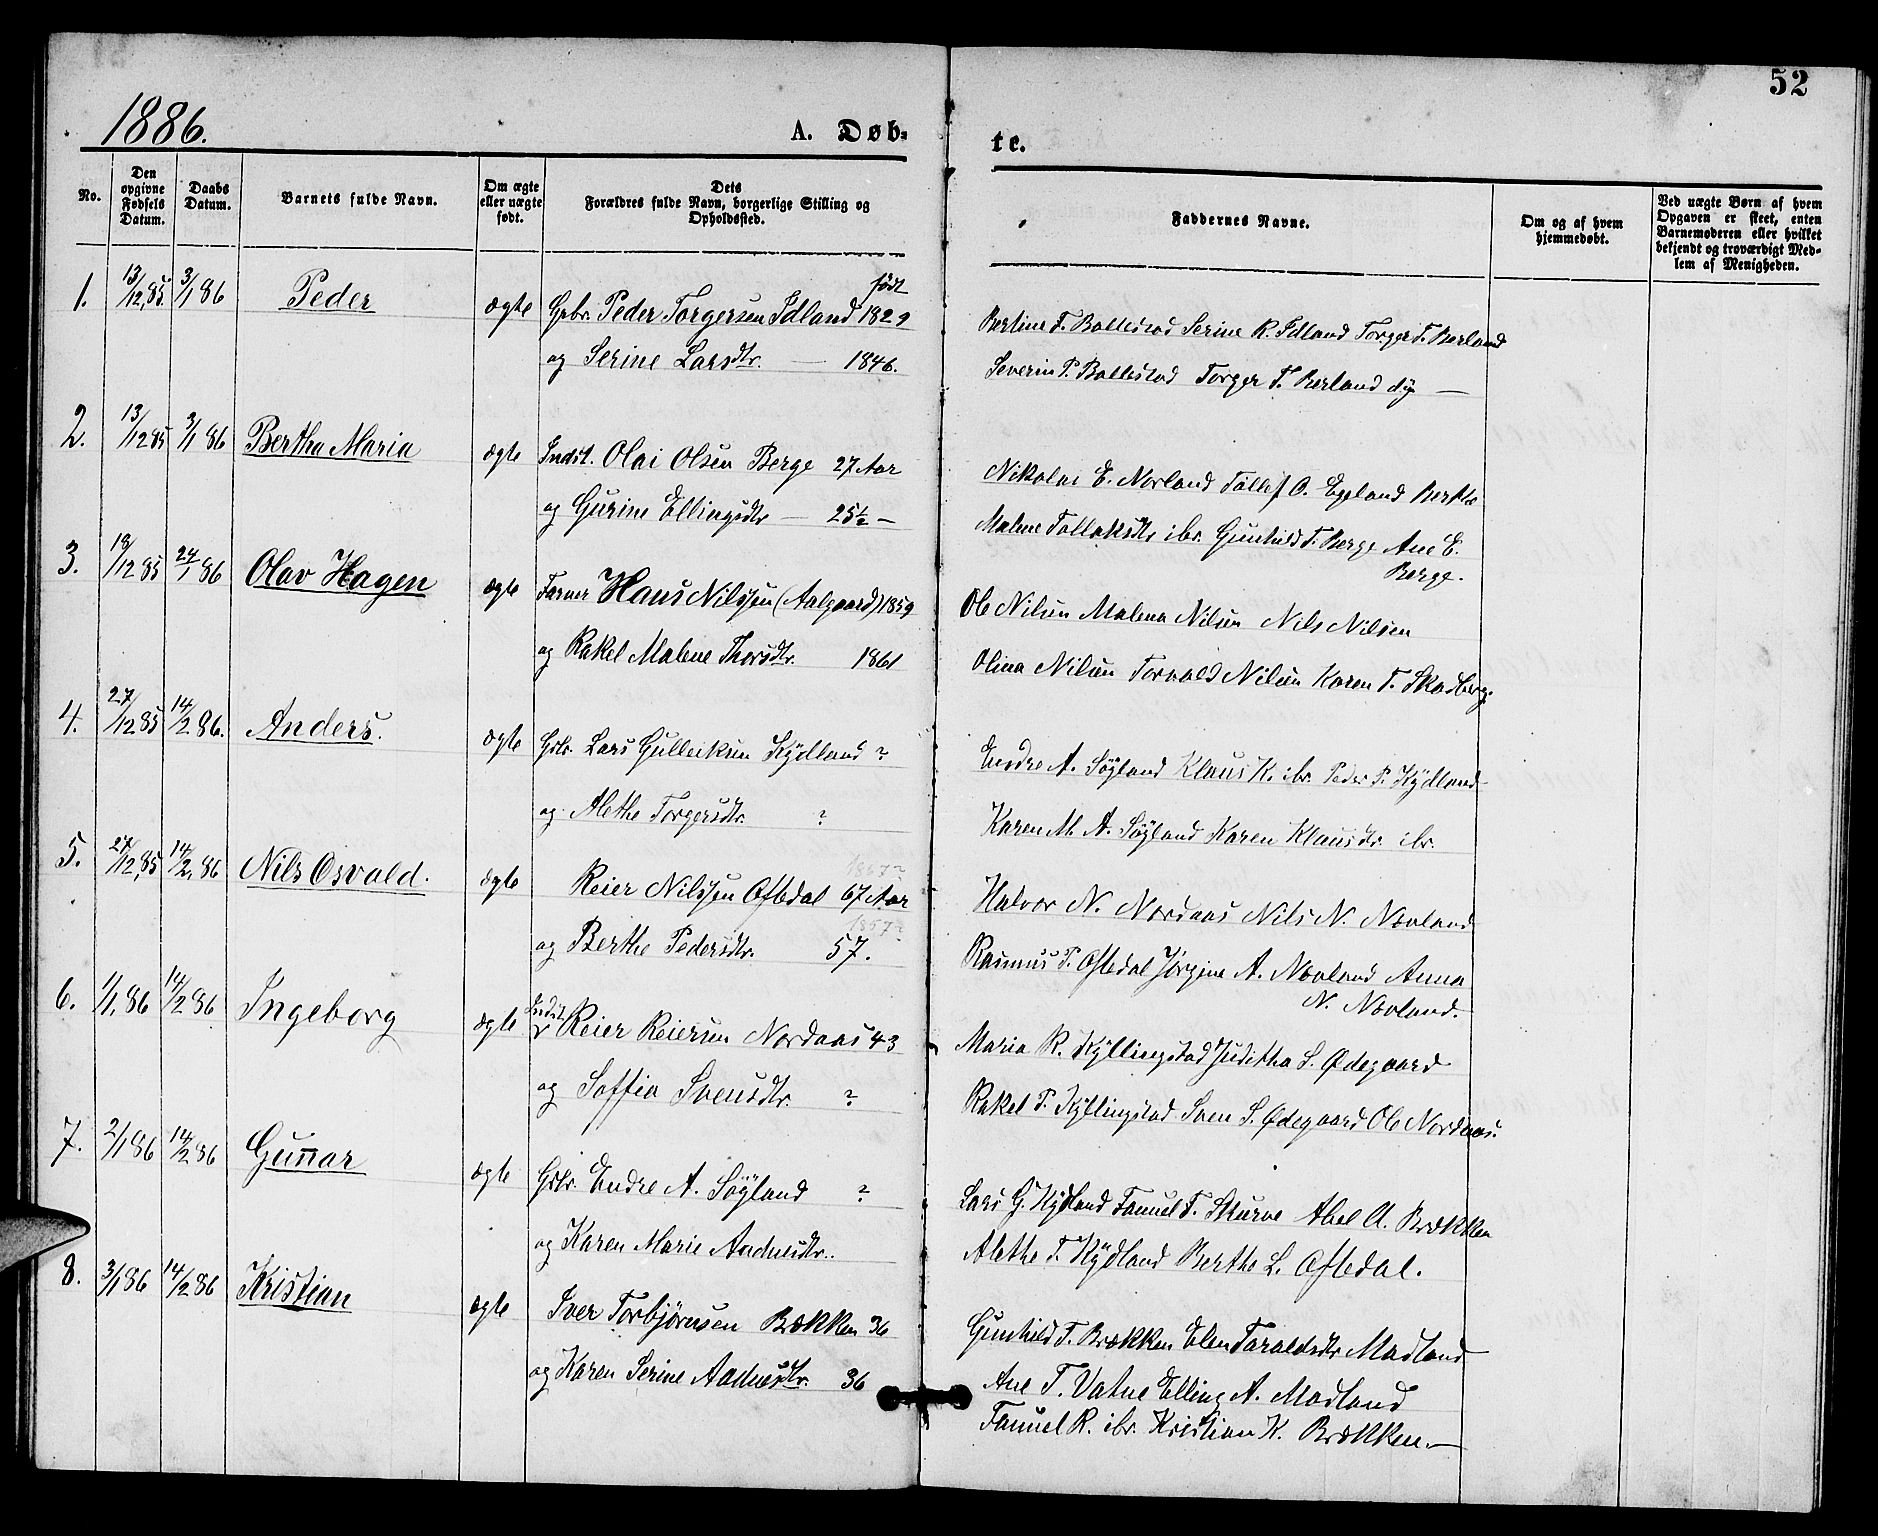 52
1886.
A. Døb-
te.
No.
Den opgivne Fødsels Datum.
Daabs Datum.
Barnets fulde Navn.
Om ægte eller uægte født.
Dets Forældres fulde Navn, borgerlige Stilling og Opholdssted.
Faddernes Navne.
Om og af hvem hjemmedøbt.
Ved uægte Børn af hvem Opgaven er skeet, enten Barnemoderen eller hvilket bekjendt og troværdigt Medlem af Menigheden.
født
1. 13/12,85. 3/1 86 Peder ægte Gbr. Peder Torgersen Idland 1829
og Serine Larsdtr. — 1846.
Bertine T. Bollestad Serine R. Idland Torger T. Berland
Severin P. Bollestad Torger T. Berland dy —
2. 13/12 85 3/1 86 Bertha Maria ægte Indst. Olai Olsen Berge 27 Aar
og Gurine Ellingsdtr — 25½ —
Nikolai E. Norland Tollef O. Egeland Berthe
Malene Tollaksdtr ibr. Gunhild T. Berge Ane E.
Berge.
3. 18/12 85 24/1 86 Olav Hagen ægte Farver Hans Nilssen (Aalgaard) 1859
og Rakel Malene Thorsdtr. 1861
Ole Nilsen Malena Nilsen Nils Nilsen
Olina Nilsen Torvald Nilsen Karen T. Skadberg.
4. 27/12 85 14/2 86. Anders. ægte Gbr. Lars Gulleiksen Kydland ?
og Alethe Torgersdtr. ?
Endre A. Søyland Klaus K. ibr. Peder P. Kydland
Karen M. A. Søyland Karen Klausdtr. ibr.
5. 27/12,85 14/2,86 Nils Osvald. ægte Reier Nilssen Oftedal 67 Aar
og Berthe Pedersdtr. 57.
1857?
Halvor N. Nordaas Nils N. Novland
Rasmus P. Oftedal Jørgine A. Novland Anna
N. Novland.
6. 1/1,86 14/2 86 Ingeborg ægte Indst. Reier Reiersen Nordaas 43
og Soffia Svensdtr. ?
Maria R. Kyllingstad Juditha S. Ødegaard
Rakel P. Kyllingstad Sven S. Ødegaard Ole Nordaas.
7. 2/1 86 14/2 86 Gunnar ægte Gbr. Endre A. Søyland ?
og Karen Marie Aadnesdtr.
Lars G. Kydland Tanuel T. Skurve Abel A. Brækken
Alethe T. Kydland Berthe L. Oftedal.
8. 3/1 86 14/2 86 Kristian ægte Iver Torbjørnsen Brækken 36
og Karen Serine Aadnesdtr. 36
Gunhild T. Brækken Elen Taraldsdtr Madland
Ane T. Vatne Elling A. Madland
Tanuel R. ibr. Kristian K. Brækken. —